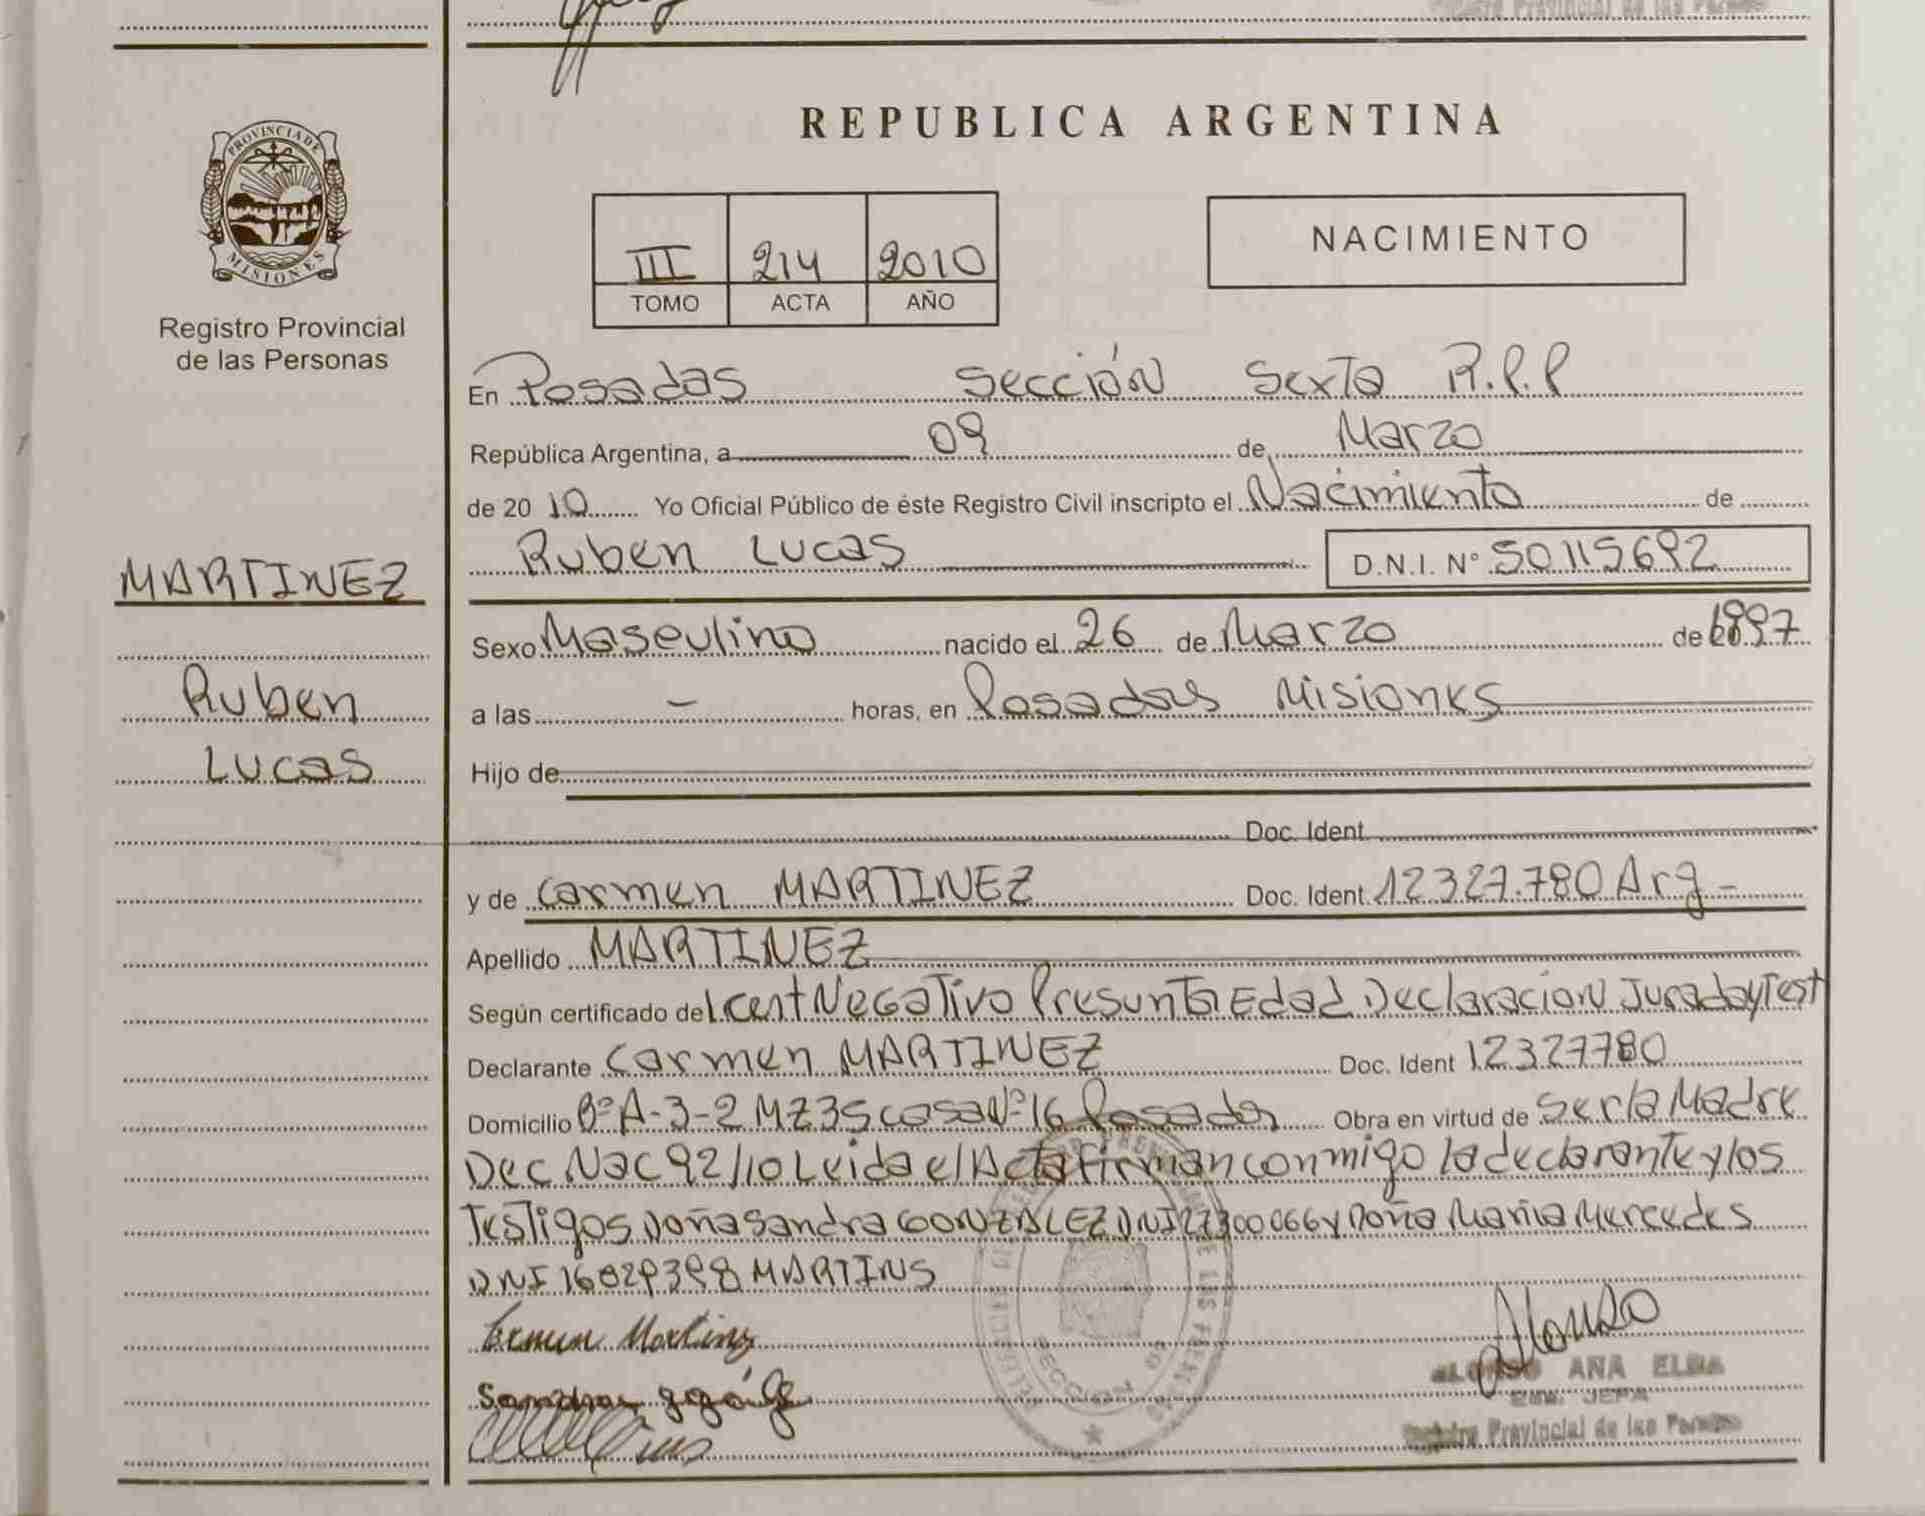 REPUBLICA ARGENTINA
PROVINCIA DE
MISIONES
Registro Provincial
de las Personas
III 214 2010
TOMO ACTA AÑO
NACIMIENTO
En Posadas Sección Sexta R.P.P
República Argentina, a 09 de Marzo
de 2010 Yo Oficial Público de éste Registro Civil inscripto el Nacimiento de
Ruben Lucas D.N.I. Nº 50115692
MARTINEZ
Ruben
Lucas
Sexo Masculino nacido el 26 de Marzo de 1997
a las – horas, en Posadas Misiones
Hijo de
Doc. Ident
y de Carmen MARTINEZ Doc. Ident 12327.780 Arg -
Apellido MARTINEZ
Según certificado del Cert Negativo Presunta Edad Declaración Jurada y Test
Declarante Carmen MARTINEZ Doc. Ident 12327780
Domicilio Bº A-3-2 MZ 35 casa Nº 16 Posadas Obra en virtud de Ser la Madre
Dec Nac 92/10 Leida el Acta firman conmigo la declarante y los
Testigos Doña Sandra GONZALEZ DNI 27300066 y Doña Maria Mercedes
DNI 16829398 MARTINS
Carmen Martinez
Sandra
Alonso
ALONSO ANA ELBA
JEFA
Registro Provincial de las Personas